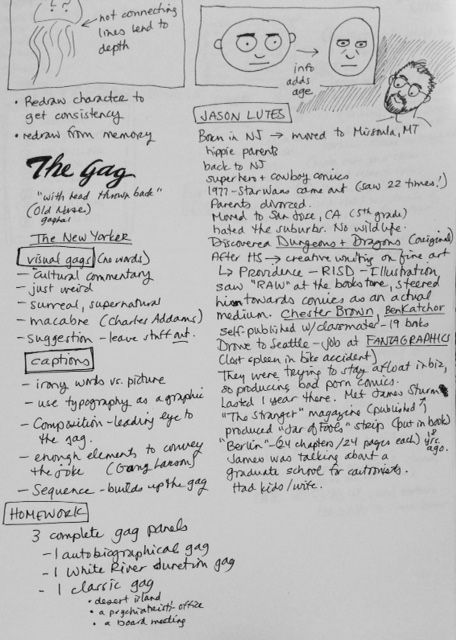 not connecting
lines lend to
depth
info
adds
age.
• Redraw character to
get consistency
• redraw from memory
The Gag
"with head thrown back"
(Old Norse)
gaghals
The New Yorker
visual gags (no words)
– cultural commentary
– just weird
– surreal, supernatural
– macabre (Charles Addams)
– suggestion – leave stuff out.
captions
– irony words vs. picture
– use typography as a graphic
– Composition – leading eye to
the gag.
– enough elements to convey
the joke (Gary Larson)
– Sequence – builds up the gag
HOMEWORK
3 complete gag panels
– 1 autobiographical gag
– 1 White River Junction gag
– 1 classic gag
• desert island
• a psychiatrist's office
• a board meeting
JASON LUTES
Born in NJ → moved to Missoula, MT
hippie parents
back to NJ
superhero + cowboy comics
1977 – Star Wars came out (saw 22 times!)
Parents divorced.
Moved to San Jose, CA (5th grade)
hated the suburbs. No wildlife.
Discovered Dungeons + Dragons (original)
After HS → creative writing or fine art
↳ Providence – RISD – Illustration
saw "RAW" at the bookstore, steered
him towards comics as an actual
medium. Chester Brown, Ben Katchor
self-published w/classmates – 19 books
Drove to Seattle – job at FANTAGRAPHICS
(lost spleen in bike accident)
They were trying to stay afloat in biz,
so producing bad porn comics.
Lasted 1 year there. Met James Sturm
"The Stranger" magazine (published ↑)
produced "Jar of Fools" strip (put in book)
"Berlin" – (24 chapters/24 pages each) 18 yrs. ago.
James was talking about a
graduate school for cartoonists.
Had kids/wife.